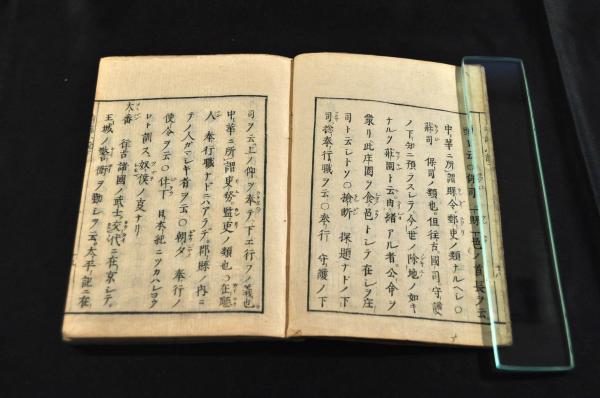 中華ニ所謂縣令郡吏ノ類ナルヘレ〇
莊司 保司ノ類也但往古國司守護
ノ下知ニ預ラスレテ今世ノ除地ノ如キ
ナルヲ莊園ト云由緒アル者公命ヲ
蒙リ此庄園ヲ食邑トレテ在レヲ庄
司ト云レトソ〇檢断 探題ナドノ下
司 奉行職ヲ云〇奉行 守護ノ下
司ヲ云上ノ仰ヲ奉テ下エ行フノ義也
中華ニ所謂吏務監吏ノ類也〇在廳
人 奉行職ナドニハアラデ郡縣ノ内ニ
テノ人ガマレキ者ヲ云〇朝夕 奉行ノ
使令ヲ云〇仕丁 日本紀ニツカハレヨウ
ト訓ス奴僕ノ支ナリ
大番 往古諸國ノ武士交代ニ在京レテ
王城ノ警衛ヲ勤レヲ云太平記ニ在